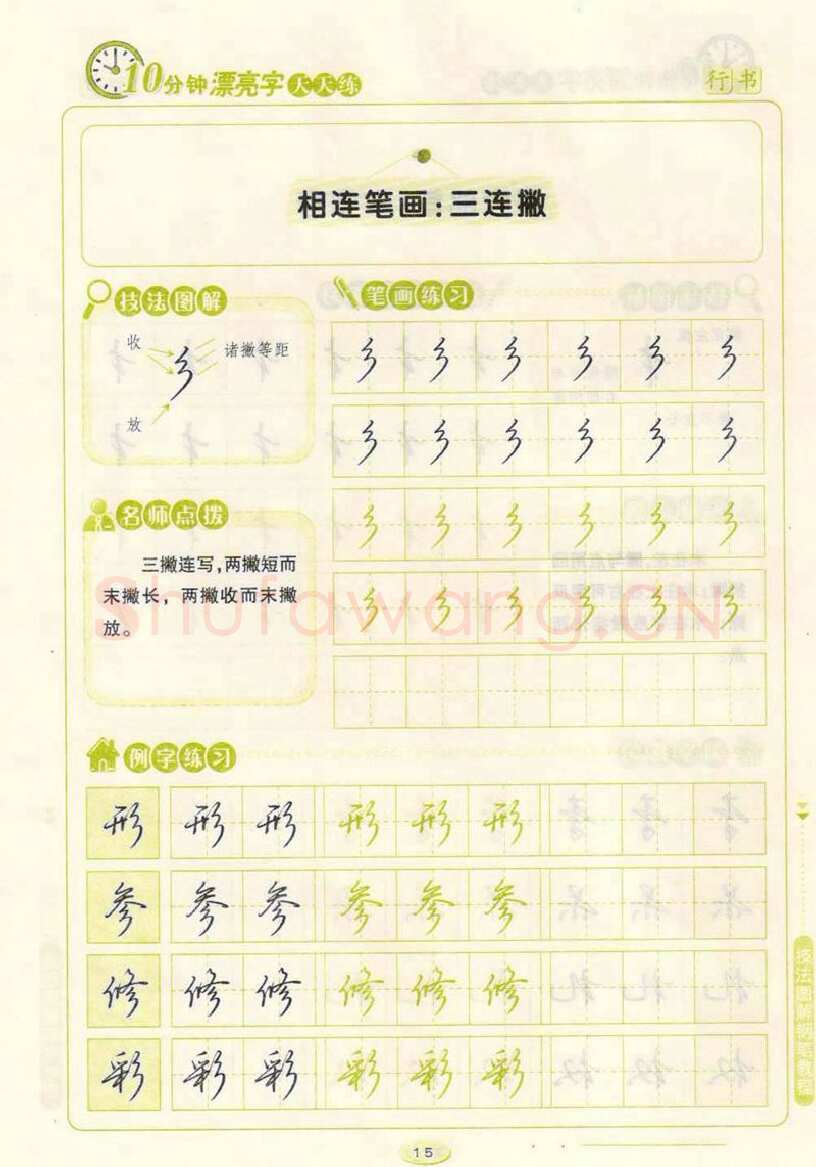 10分钟漂亮字天天练
行书
相连笔画:三连撇
技法图解
收
诸撇等距
放
笔画练习
彡 彡 彡 彡 彡 彡
彡 彡 彡 彡 彡 彡
名师点拨
彡 彡 彡 彡 彡 彡
三撇连写,两撇短而
末撇长,两撇收而末撇
放。
彡 彡 彡 彡 彡 彡
Shufawang.CN
例字练习
形 形 形 形 形 形
参 参 参 参 参 参
修 修 修 修 修 修
彩 彩 彩 彩 彩 彩
技法图解钢笔教程
15